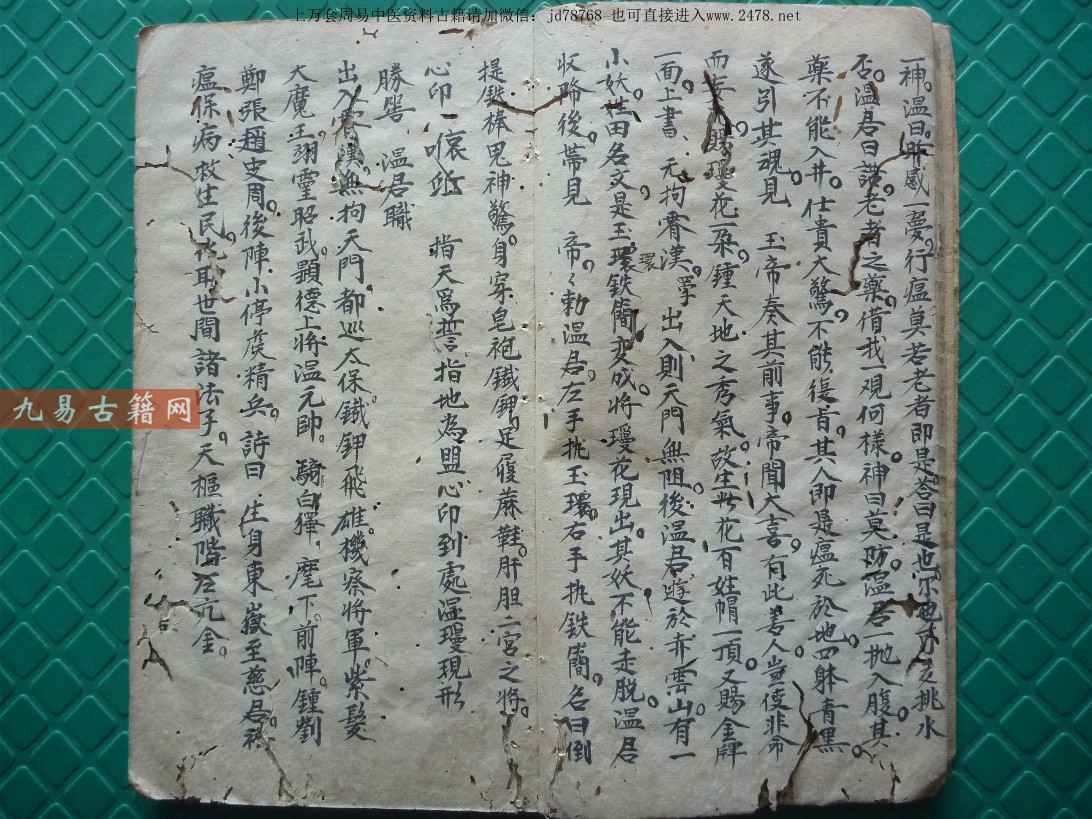 上万套周易中医资料古籍请加微信：jd78768 也可直接进入www.2478.net
一神。温曰。昨感一夢。行瘟莫若老者即是。答曰是也。不 挑水
否。温君曰讚。老者之藥。借我一观何樣。神曰莫防。温君一抛入腹。其
藥不能入井。仕貴大驚。不能復旨。其人即是瘟死於地。四躰青黑。
遂引其魂見 玉帝奏其前事。帝聞大喜。有此善人。豈使非命
而 賜瓊花一朶。鍾天地之秀氣。故生此花。百姓帽一頂。又賜金牌
一面。上書 元拘霄漢。 出入則天門無阻。後温君遊於赤雲山。有一
小妖。姓田名文是玉環鉄簡変成。將瓊花現出。其妖不能走脱。温君
環
収降後。帶見 帝。々勅温君。左手執玉環。右手執鉄簡。名曰倒
提鉄棒鬼神驚。身穿皂袍鐵鉀。足履蔴鞋。肝胆二宮之將。
心印 指天為誓。指地為盟。心印到處。温瓊現形
勝器 温君職
出入霄漢。無拘天門。都巡太保。鐵鉀飛雄。機察將軍。紫髮
大魔王。翊靈昭武。顕德上將温元帥。 騎白獬。麾下。前陣。鍾劉
鄭張趙史周。後陣。小停虞精兵。詩曰 生身東嶽至慈君。
瘟保病救生民。 世間諸法子。天樞職階左亢金。
九易古籍网